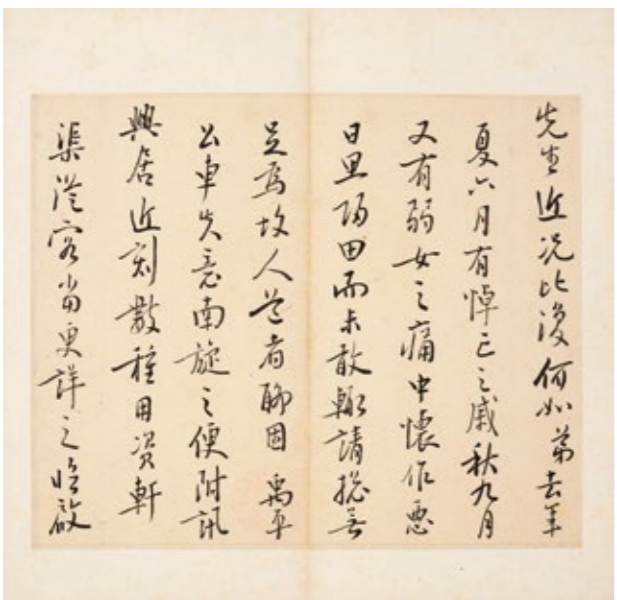 先生近況比復何如弟去年
夏六月有悼亡之戚秋九月
又有弱女之痛中懷作惡
日思歸田而未敢輒請総無
足為故人道者聊因 禹平
公車失意南旋之便附訊
興居近刻數種用資軒
渠從容當更詳之臨啟